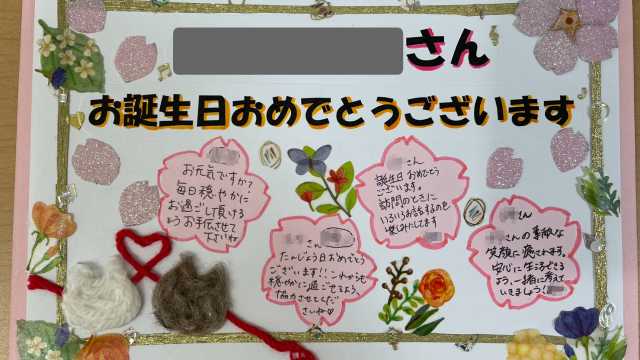 さん
お誕生日おめでとうございます
お元気ですか？
毎日穏やかに
お過ごし頂ける
ようお手伝させて
下さいね
さん
誕生日おめでとう
ございます。
訪問のときに
いろいろお話するのを
楽しみにしてます
さん
たんじょう日おめでとう
ございます!!これからも
穏やかに過ごせるよう
協力させてくだ
さいね♡
さん
さんの素敵な
笑顔に癒されます。
安心に生活できる
よう、一緒に考えて
いきましょう！